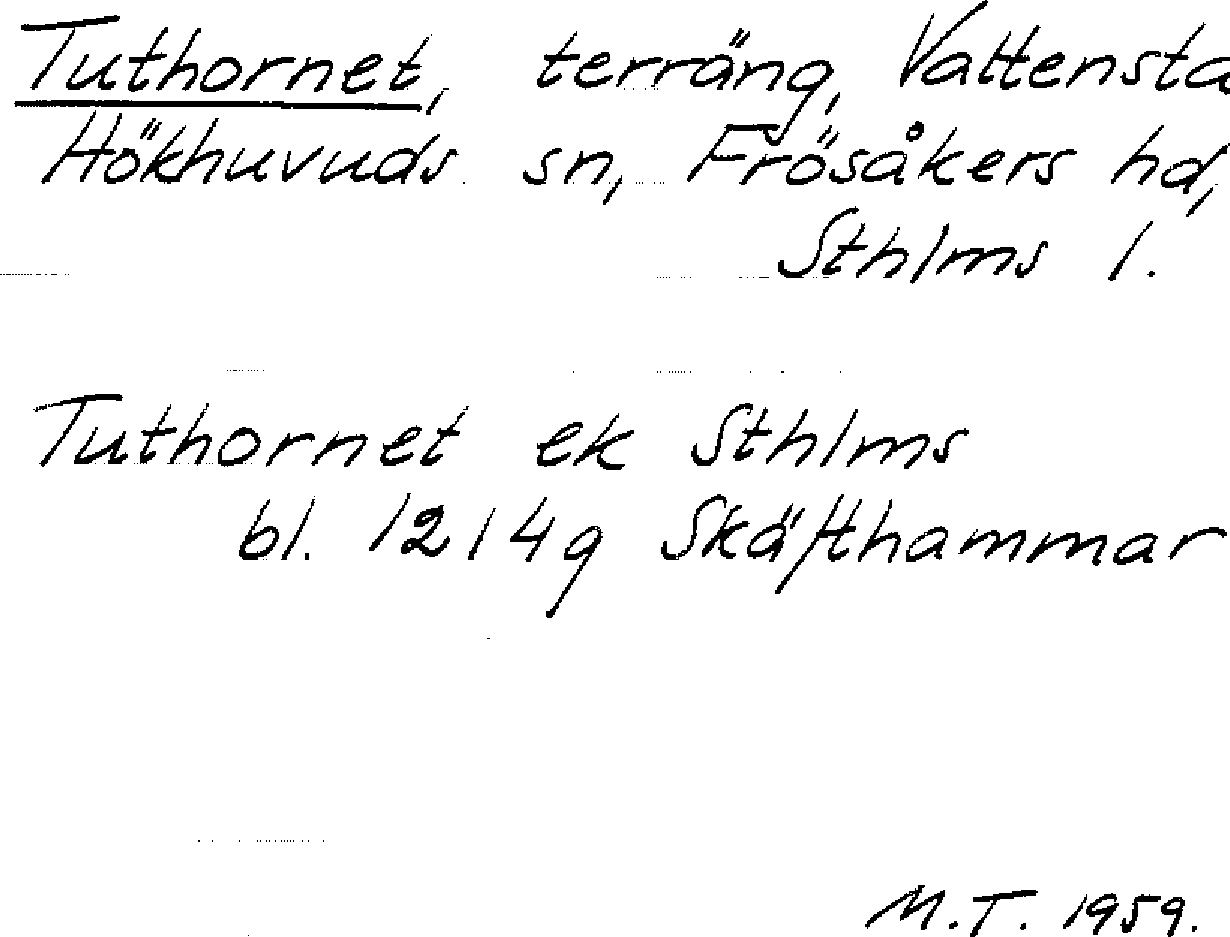 Tuthornet, terräng, Vattensta
Hökhuvuds sn, Frösåkers hd,
Sthlms l.
Tuthornet ek Sthlms
bl. 12I4g Skäfthammar
M.T. 1959.